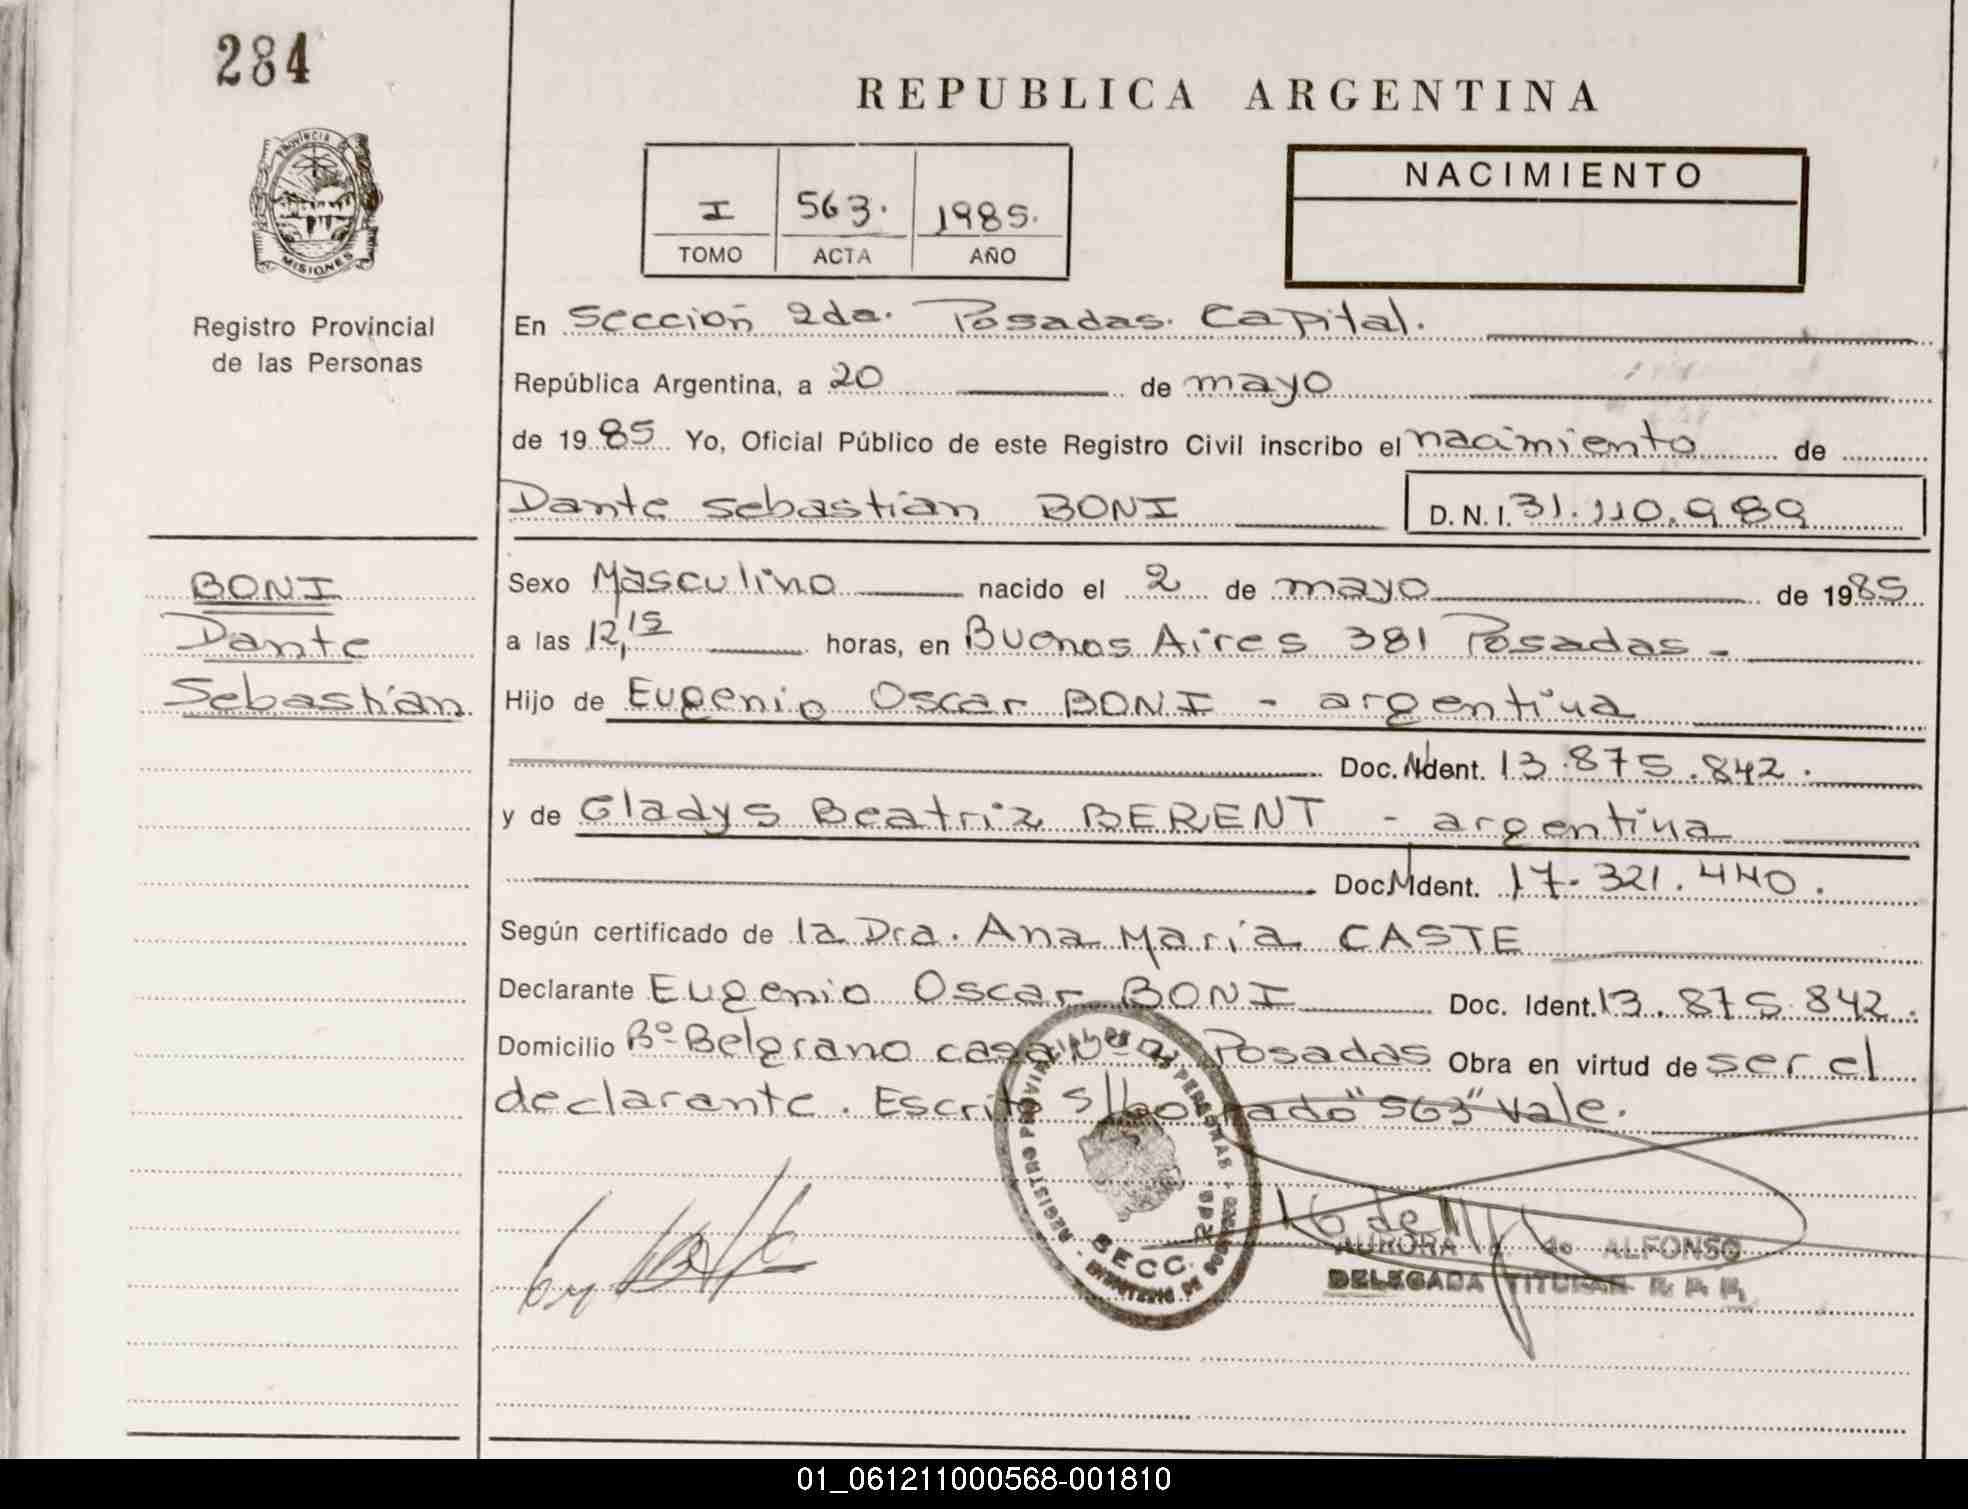 284
REPUBLICA ARGENTINA
PROVINCIA
MISIONES
Registro Provincial
de las Personas
I 563. 1985.
TOMO ACTA AÑO
NACIMIENTO
En Sección 2da. Posadas. Capital.
República Argentina, a 20 de mayo
de 1985 Yo, Oficial Público de este Registro Civil inscribo el nacimiento de
Dante Sebastián BONI D.N.I. 31.110.989
BONI
Dante
Sebastián
Sexo Masculino nacido el 2 de mayo de 1985
a las 12,15 horas, en Buenos Aires 381 Posadas -
Hijo de Eugenio Oscar BONI - argentina
Doc. Ident. 13.875.842.
y de Gladys Beatriz BERENT - argentina
Doc. Ident. 17.321.440.
Según certificado de la Dra. Ana María CASTE
Declarante Eugenio Oscar BONI Doc. Ident. 13.875.842.
Domicilio Bº Belgrano casa Posadas Obra en virtud de ser el
declarante. Escrito s/borrado "563" Vale.
REGISTRO PROVINCIAL DE LAS PERSONAS
SECC. 2da.
MINISTERIO DE GOBIERNO
AURORA de ALFONSO
DELEGADA TITULAR R. P. P.
01_061211000568-001810